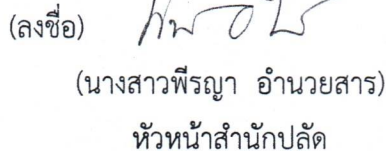 (ลงชื่อ)
(นางสาวพีรญา อำนวยสาร)
หัวหน้าสำนักปลัด